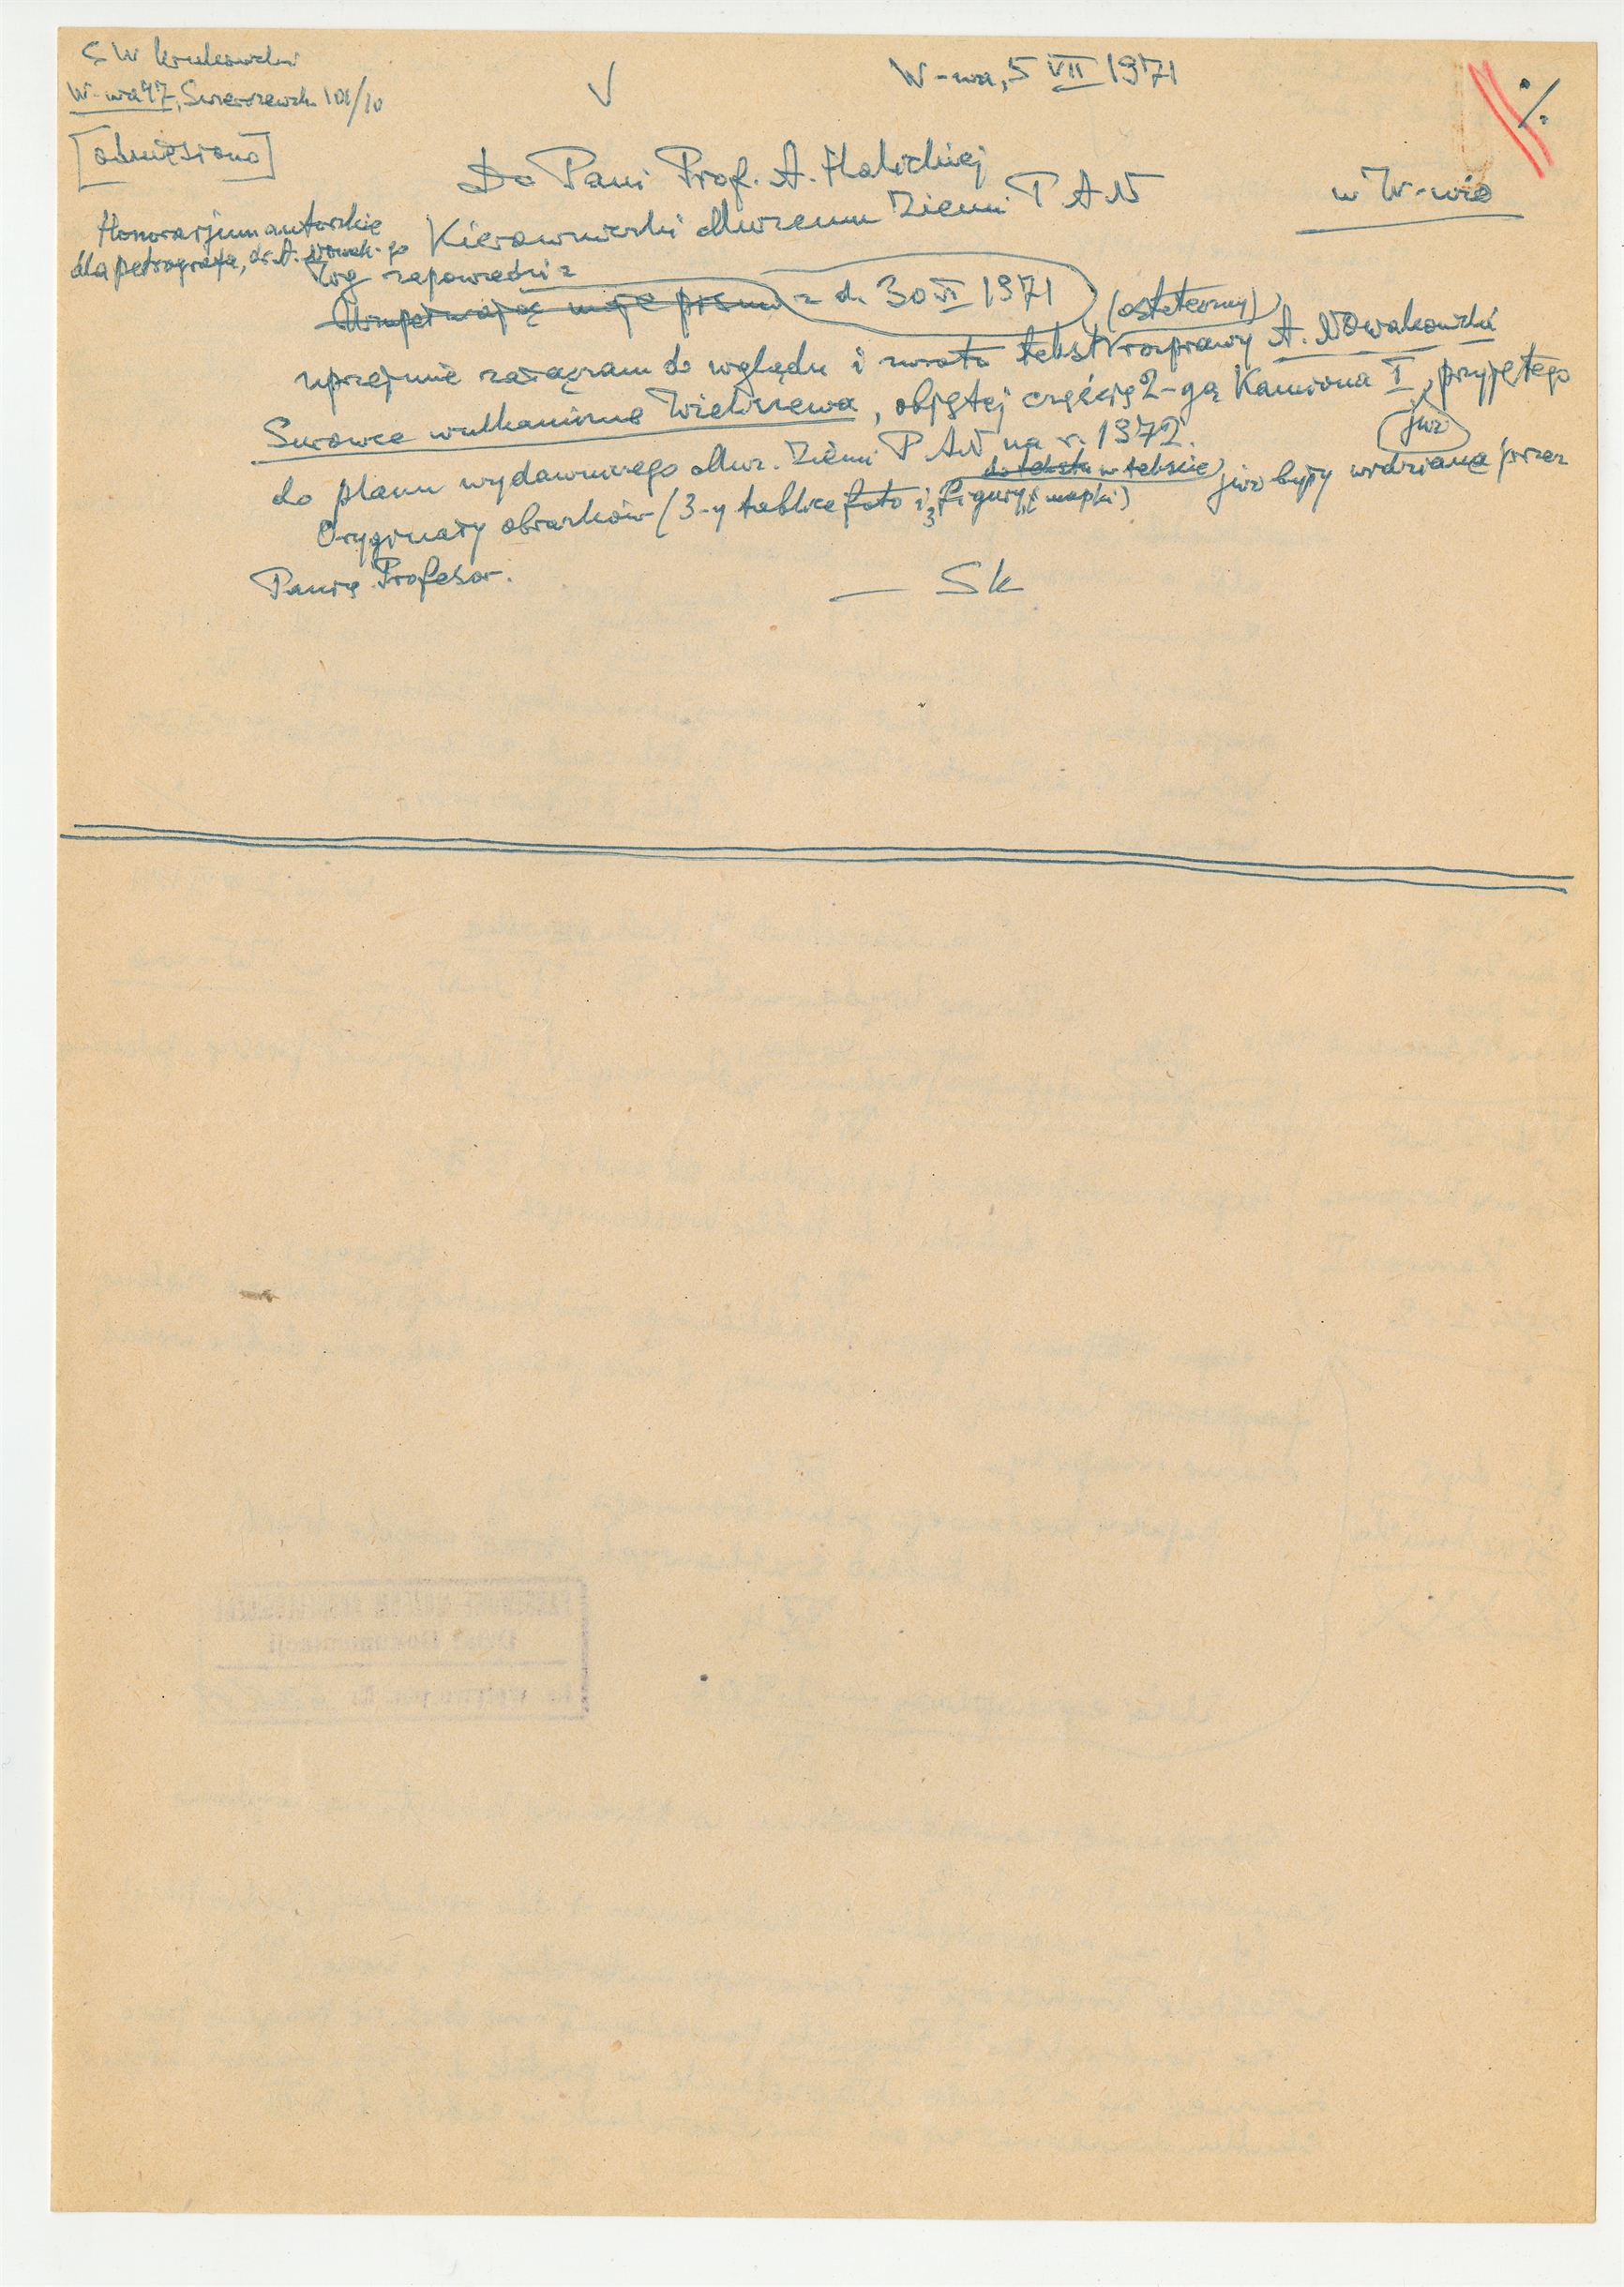 S W Krukowski
W-wa 47, Świerczewsk. 101/10
[odniesiono]
V
W-wa, 5 VII 1971
%
Do Pani Prof. A. Halickiej
Kierowniczki Muzeum Ziemi PAN
w W-wie
Honorarjum autorskie
dla petrografa, dr. A. Nowak-go
Wg zapowiedzi z
Uzupełniając moje pismo z d. 30 VI 1971 (ostateczny)
uprzejmie załączam do wglądu i zwrotu tekst rozprawy A. Nowakowski
Surowce wulkaniczne Wieliszewa, objętej częścią 2-gą Kamiona I, przyjętego
już
do planu wydawniczego Muz. Ziemi PAN na r. 1972.
do tekstu w tekście
Oryginały obrazków (3-y tablice foto i 3 figury, i mapki) już były widziane przez
Panią Profesor.
— Sk